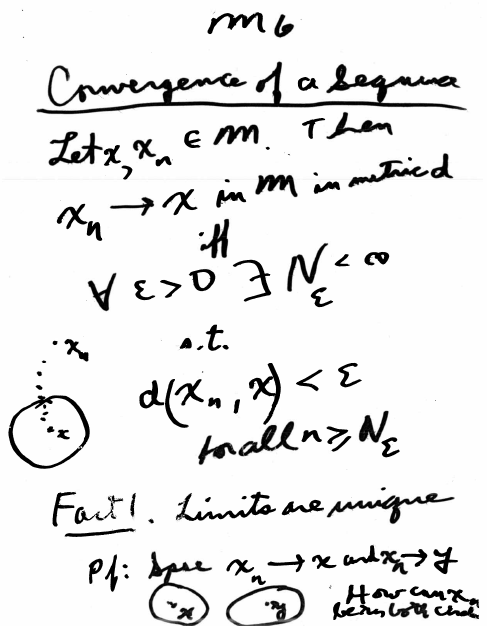 M6
Convergence of a Sequence
Let x, xₙ ∈ M. Then
xₙ → x in M in metric d
iff
∀ ε > 0 ∃ N_ε < ∞
s.t.
xₙ
d(xₙ, x) < ε
x
for all n ≥ N_ε
Fact 1. Limits are unique
Pf: Spse xₙ → x and xₙ → y
x y How can xₙ
be in both